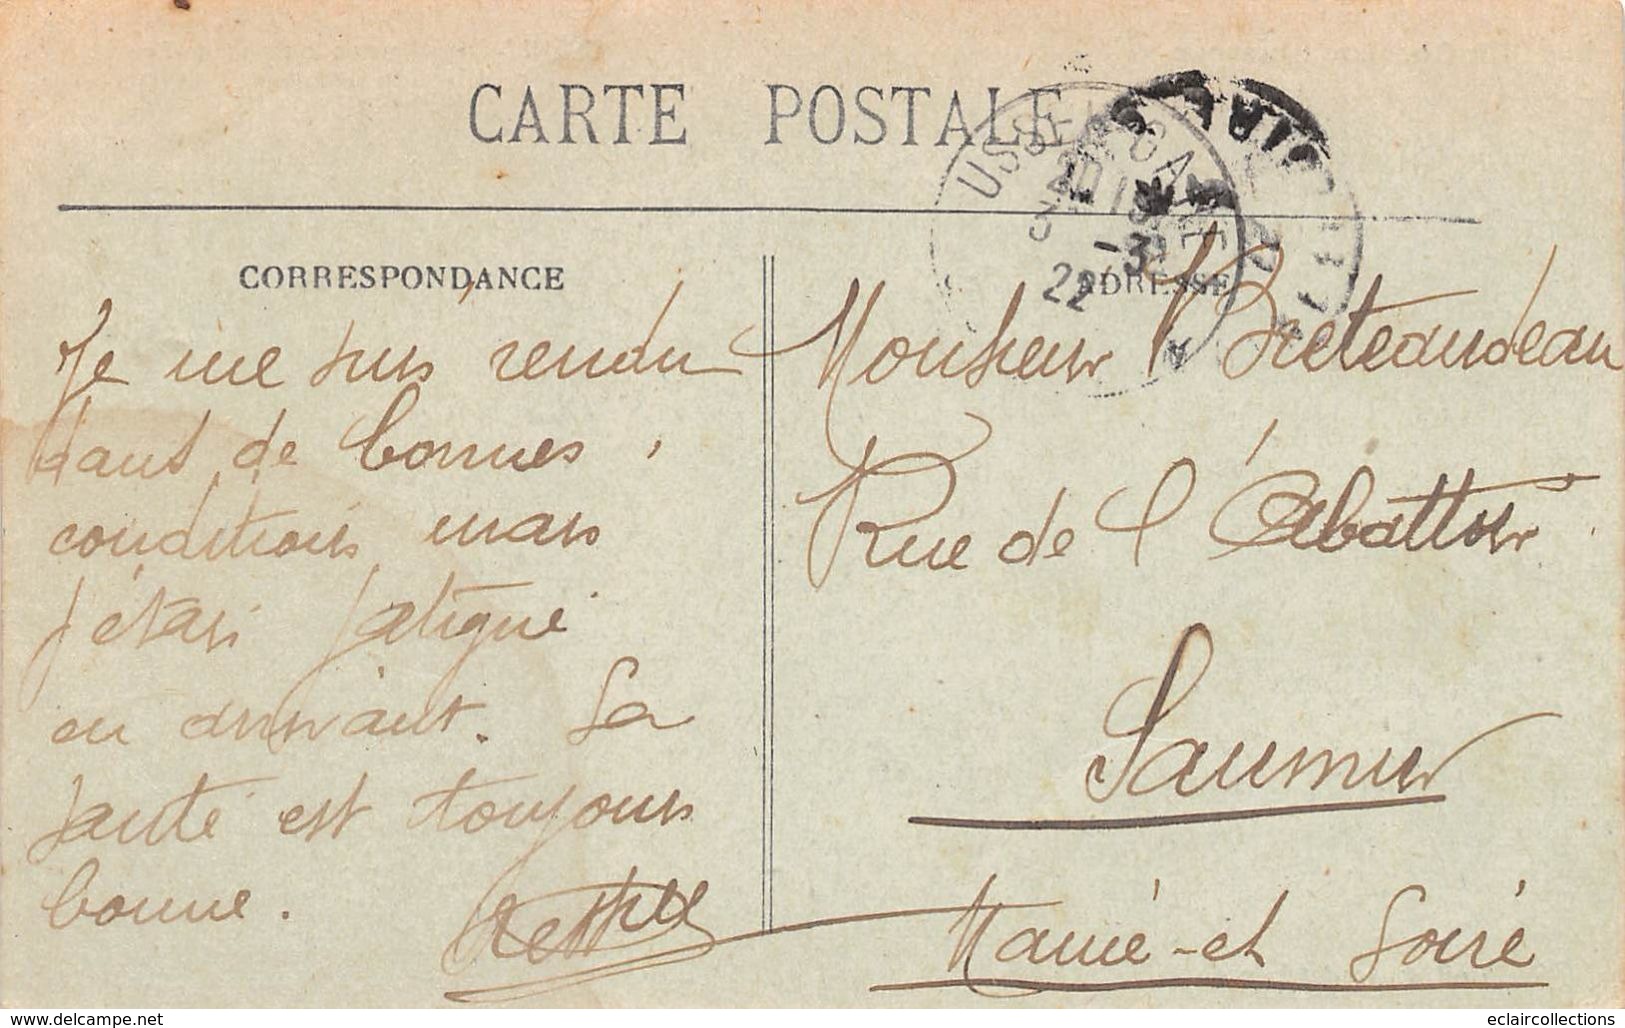 CARTE POSTALE
CORRESPONDANCE
Je me suis rendu
dans de bonnes
conditions mais
j'étais fatigué
en arrivant. La
santé est toujours
bonne.
USSE
22
ADRESSE
Monsieur Breteaudeau
Rue de l'Abattoir
Saumur
Maine-et Loire
www.delcampe.net
eclaircollections